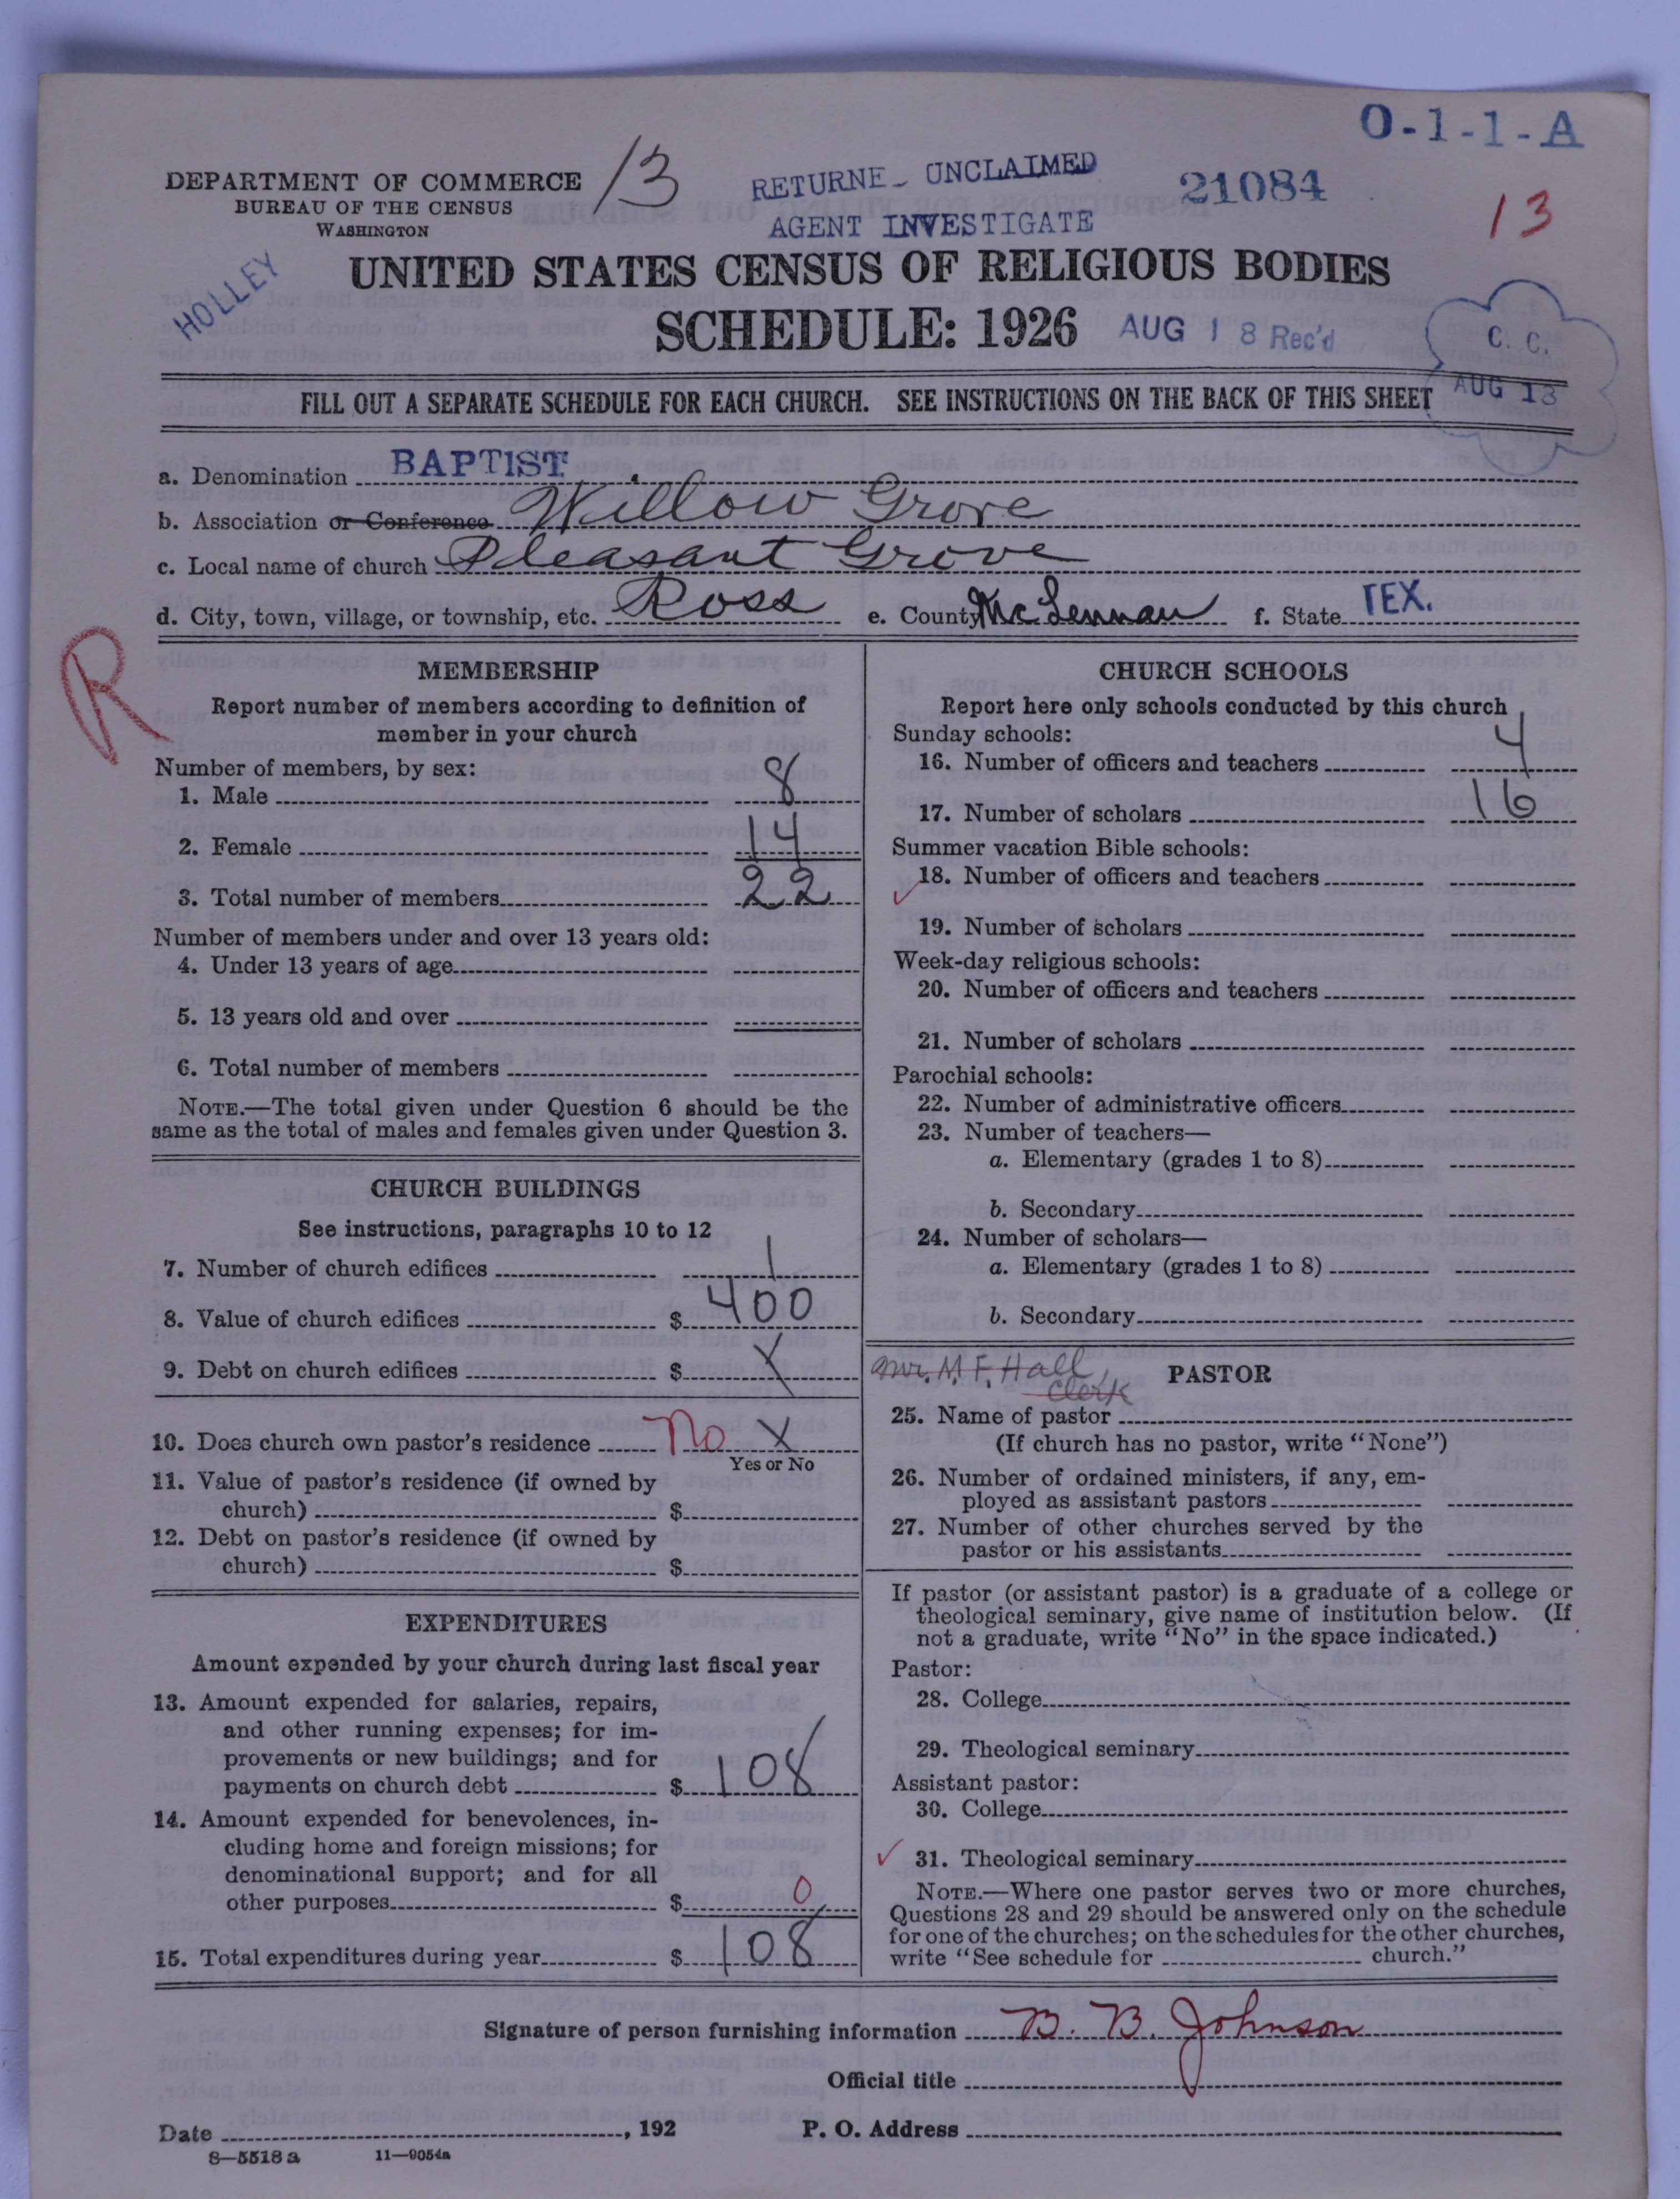 O-1-1-A
DEPARTMENT OF COMMERCE
BUREAU OF THE CENSUS
WASHINGTON
13
RETURNE UNCLAIMED
AGENT INVESTIGATE
21084
13
HOLLEY
UNITED STATES CENSUS OF RELIGIOUS BODIES
SCHEDULE: 1926
AUG 18 Rec'd
C. C.
AUG 13
FILL OUT A SEPARATE SCHEDULE FOR EACH CHURCH. SEE INSTRUCTIONS ON THE BACK OF THIS SHEET
a. Denomination BAPTIST.
b. Association or Conference Willow Grove
c. Local name of church Pleasant Grove
d. City, town, village, or township, etc. Ross e. County McLennan f. State TEX.
R
MEMBERSHIP
Report number of members according to definition of
member in your church
Number of members, by sex:
1. Male 8
2. Female 14
3. Total number of members 22
Number of members under and over 13 years old:
4. Under 13 years of age
5. 13 years old and over
6. Total number of members
NOTE.—The total given under Question 6 should be the
same as the total of males and females given under Question 3.
CHURCH BUILDINGS
See instructions, paragraphs 10 to 12
7. Number of church edifices 1
8. Value of church edifices $ 400
9. Debt on church edifices $ X
10. Does church own pastor's residence No X
Yes or No
11. Value of pastor's residence (if owned by
church) $
12. Debt on pastor's residence (if owned by
church) $
EXPENDITURES
Amount expended by your church during last fiscal year
13. Amount expended for salaries, repairs,
and other running expenses; for im-
provements or new buildings; and for
payments on church debt $ 108
14. Amount expended for benevolences, in-
cluding home and foreign missions; for
denominational support; and for all
other purposes $ 0
15. Total expenditures during year $ 108
CHURCH SCHOOLS
Report here only schools conducted by this church
Sunday schools:
16. Number of officers and teachers 4
17. Number of scholars 16
Summer vacation Bible schools:
18. Number of officers and teachers
19. Number of scholars
Week-day religious schools:
20. Number of officers and teachers
21. Number of scholars
Parochial schools:
22. Number of administrative officers
23. Number of teachers—
a. Elementary (grades 1 to 8)
b. Secondary
24. Number of scholars—
a. Elementary (grades 1 to 8)
b. Secondary
Mr. M. F. Hall,
Clerk
PASTOR
25. Name of pastor
(If church has no pastor, write "None")
26. Number of ordained ministers, if any, em-
ployed as assistant pastors
27. Number of other churches served by the
pastor or his assistants
If pastor (or assistant pastor) is a graduate of a college or
theological seminary, give name of institution below. (If
not a graduate, write "No" in the space indicated.)
Pastor:
28. College
29. Theological seminary
Assistant pastor:
30. College
31. Theological seminary
NOTE.—Where one pastor serves two or more churches,
Questions 28 and 29 should be answered only on the schedule
for one of the churches; on the schedules for the other churches,
write "See schedule for church."
Signature of person furnishing information B. B. Johnson
Official title
Date , 192 P. O. Address
8—5518 a 11—9054a